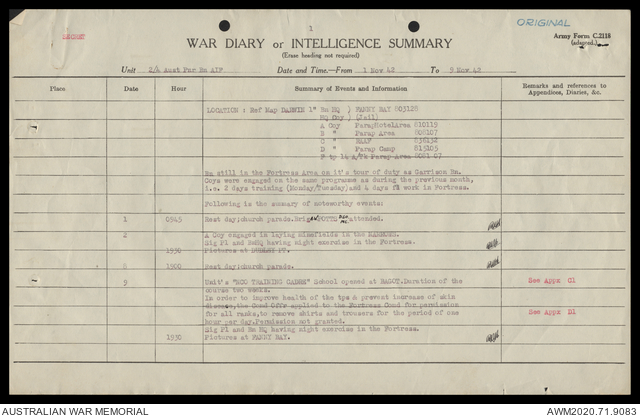 1
ORIGINAL
SECRET
WAR DIARY or INTELLIGENCE SUMMARY
Army Form C.2118
(adapted.)
(Erase heading not required)
Unit 2/4 Aust Pnr Bn AIF
Date and Time.—From 1 Nov 42 To 9 Nov 42
Place Date Hour Summary of Events and Information Remarks and references to Appendices, Diaries, &c.
LOCATION : Ref Map DARWIN 1" Bn HQ ) FANNY BAY 803125
HQ Coy ) (Jail)
A Coy Parap Hotel Area 810119
B " Parap Area 808107
C " RAAF
D " Parap Camp 815105
Bn still in the Fortress Area on it's tour of duty as Garrison Bn.
Coys were engaged on the same programme as during the previous month,
i.e. 2 days training (Monday/Tuesday) and 4 days work in Fortress.
Following is the summary of noteworthy events:
1 0545 Rest day:church parade.Brig POTTS attended.
2 A Coy engaged in laying minefields in the NARROWS.
Sig Pl and BnHQ having night exercise in the Fortress.
1930 Pictures at DUDLEY PT.
8 1900 Rest day:church parade.
9 Unit's "NCO TRAINING CADRE" School opened at BAGOT.Duration of the See Appx C1
course two weeks.
In order to improve health of the tps & prevent increase of skin
disease,the Comd Offr applied to the Fortress Comd for permission
for all ranks,to remove shirts and trousers for the period of one See Appx D1
hour per day.Permission not granted.
Sig Pl and Bn HQ having night exercise in the Fortress.
1930 Pictures at FANNY BAY.
AUSTRALIAN WAR MEMORIAL
AWM2020.71.9083